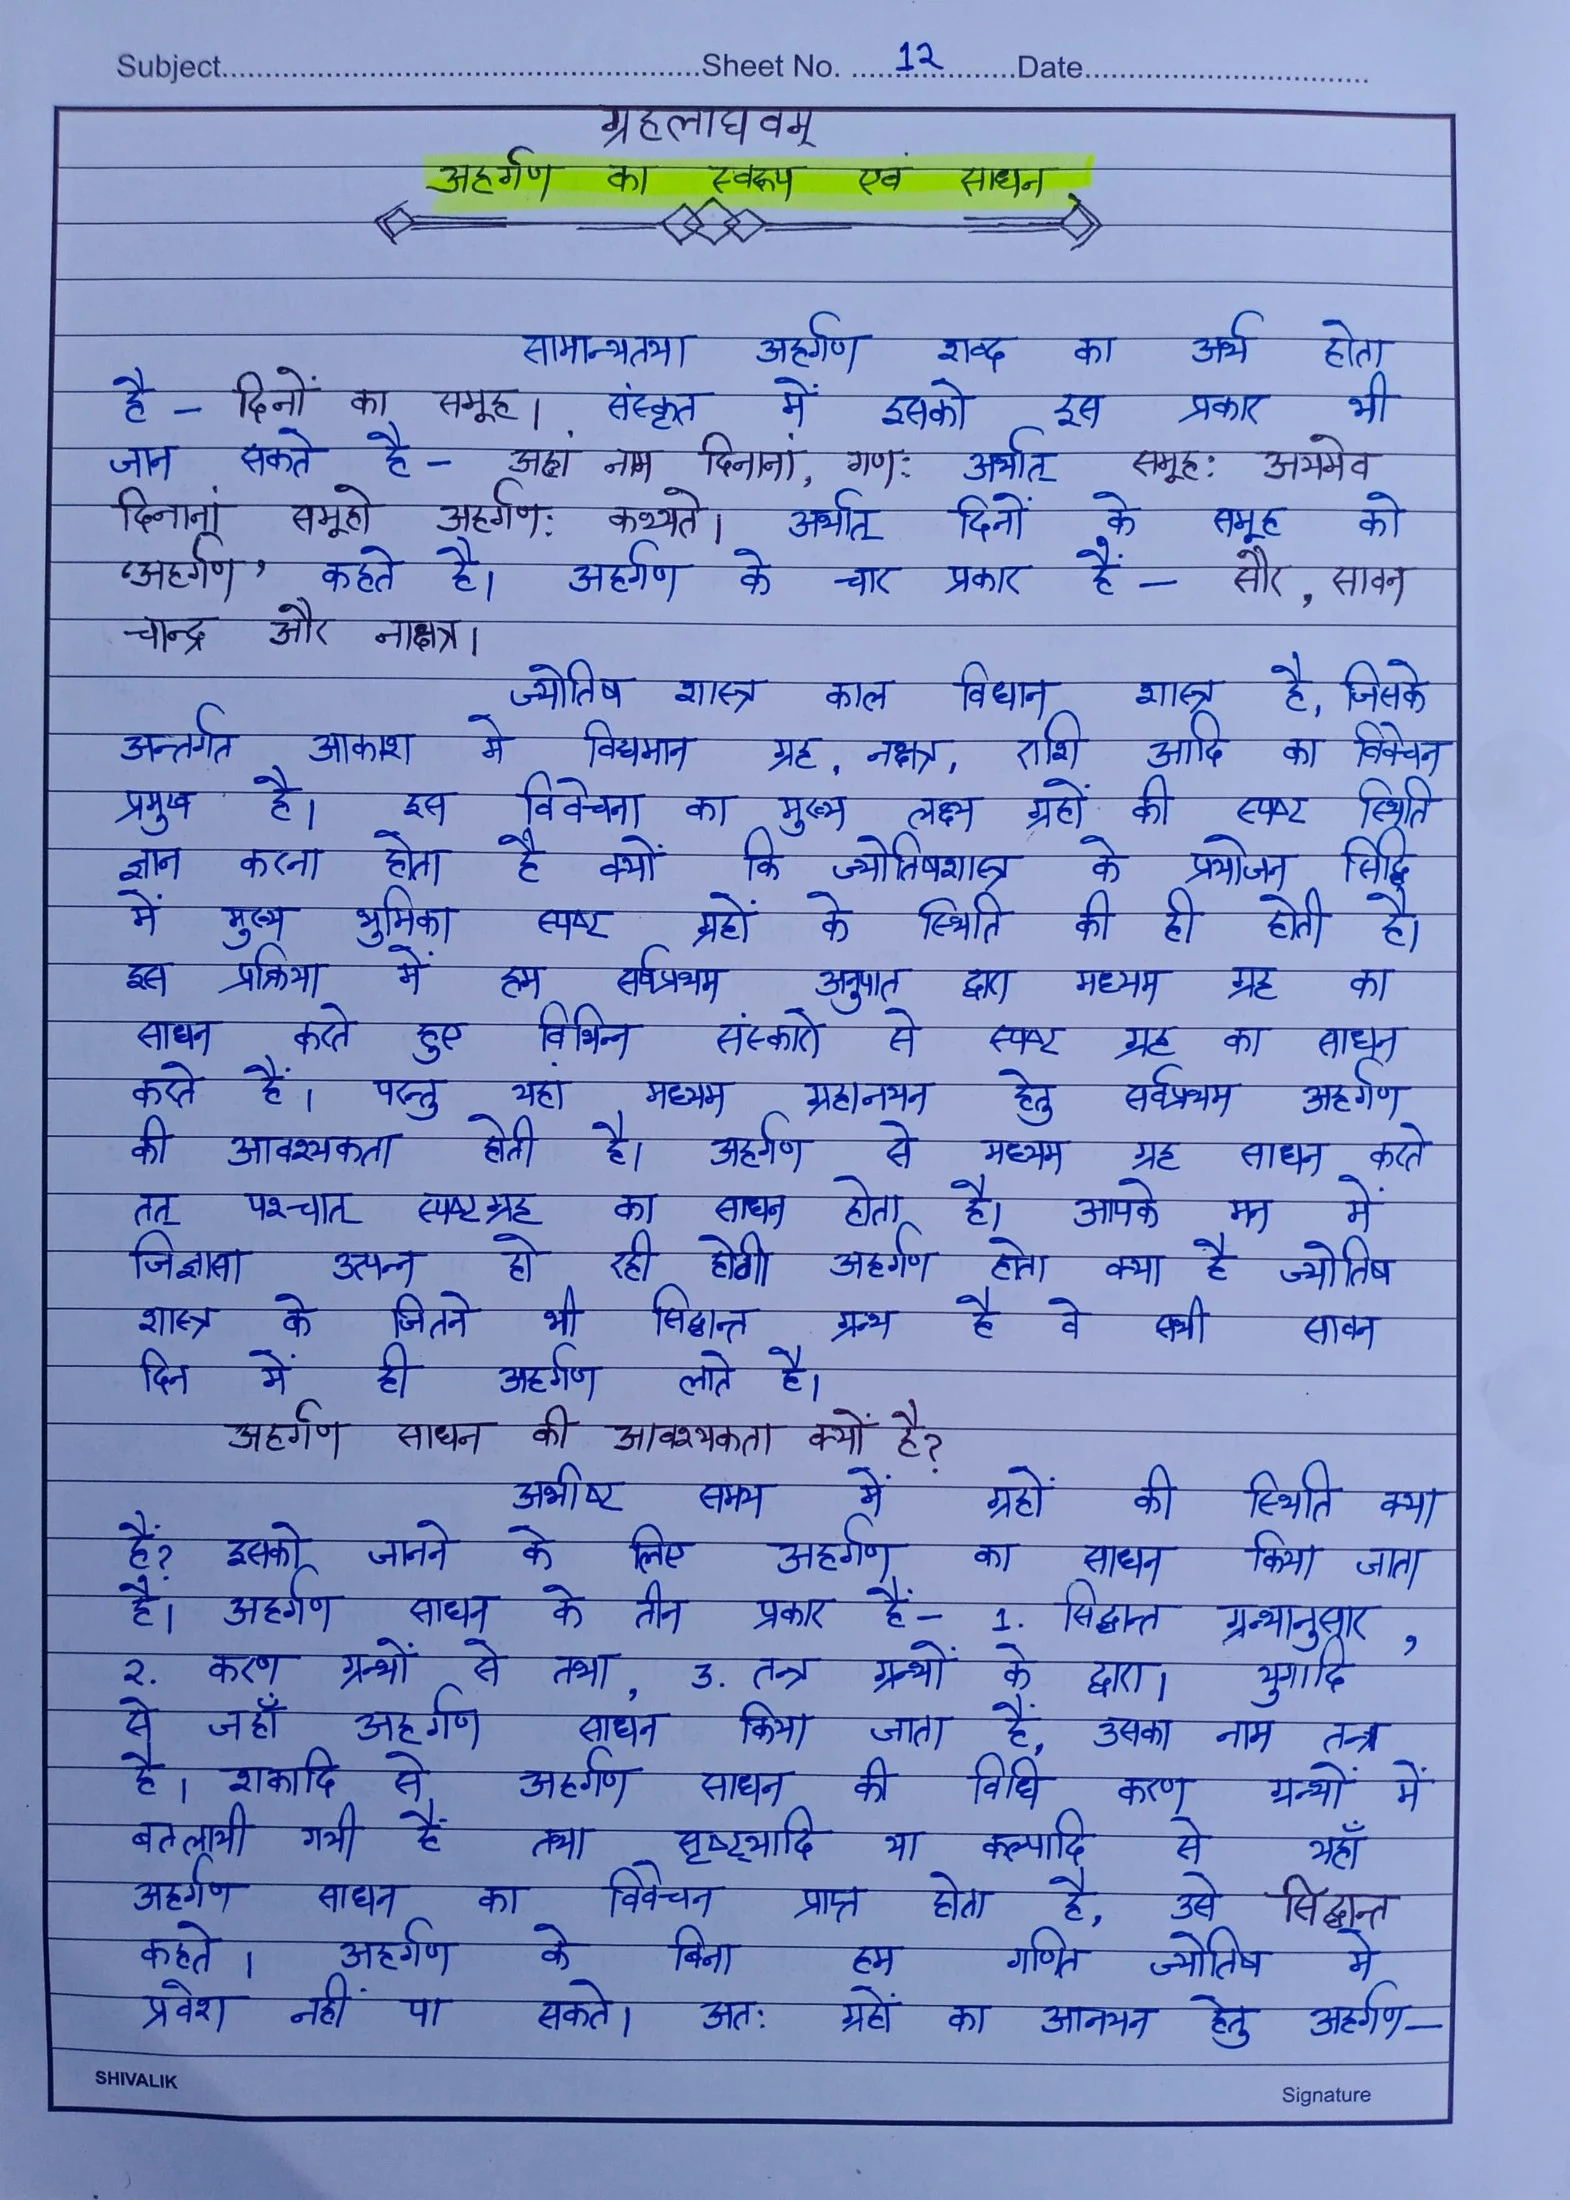 Subject..........Sheet No. ....१२....Date..........
ग्रहलाघवम्
अहर्गण का स्वरूप एवं साधन
सामान्यतया अहर्गण शब्द का अर्थ होता
है – दिनों का समूह। संस्कृत में इसको इस प्रकार भी
जान सकते है – अहां नाम दिनानां, गणः अर्थात् समूहः अयमेव
दिनानां समूहो अहर्गणः कथ्यते। अर्थात् दिनों के समूह को
'अहर्गण' कहते है। अहर्गण के चार प्रकार हैं – सौर, सावन
चान्द्र और नाक्षत्र।
ज्योतिष शास्त्र काल विधान शास्त्र है, जिसके
अन्तर्गत आकाश मे विद्यमान ग्रह, नक्षत्र, राशि आदि का विवेचन
प्रमुख है। इस विवेचना का मुख्य लक्ष्य ग्रहों की स्पष्ट स्थिति
ज्ञान करना होता है क्यों कि ज्योतिषशास्त्र के प्रयोजन सिद्धि
में मुख्य भुमिका स्पष्ट ग्रहों के स्थिति की ही होती है।
इस प्रक्रिया में हम सर्वप्रथम अनुपात द्वारा मध्यम ग्रह का
साधन करते हुए विभिन्न संस्कारो से स्पष्ट ग्रह का साधन
करते हैं। परन्तु यहां मध्यम ग्रहानयन हेतु सर्वप्रथम अहर्गण
की आवश्यकता होती है। अहर्गण से मध्यम ग्रह साधन करते
तत् पश्चात् स्पष्टग्रह का साधन होता है। आपके मन में
जिज्ञासा उत्पन्न हो रही होगी अहर्गण होता क्या है ज्योतिष
शास्त्र के जितने भी सिद्धान्त ग्रन्थ है वे सभी सावन
दिन में ही अहर्गण लाते है।
अहर्गण साधन की आवश्यकता क्यों है?
अभीष्ट समय में ग्रहों की स्थिति क्या
हैं? इसको जानने के लिए अहर्गण का साधन किया जाता
है। अहर्गण साधन के तीन प्रकार हैं – 1. सिद्धान्त ग्रन्थानुसार,
२. करण ग्रन्थों से तथा, 3. तन्त्र ग्रन्थों के द्वारा। युगादि
से जहाँ अहर्गण साधन किया जाता हैं, उसका नाम तन्त्र
है। शकादि से अहर्गण साधन की विधि करण ग्रन्थों में
बतलायी गयी हैं तथा सृष्ट्यादि या कल्पादि से यहाँ
अहर्गण साधन का विवेचन प्राप्त होता है, उसे सिद्धान्त
कहते। अहर्गण के बिना हम गणित ज्योतिष मे
प्रवेश नहीं पा सकते। अतः ग्रहों का आनयन हेतु अहर्गण–
SHIVALIK
Signature